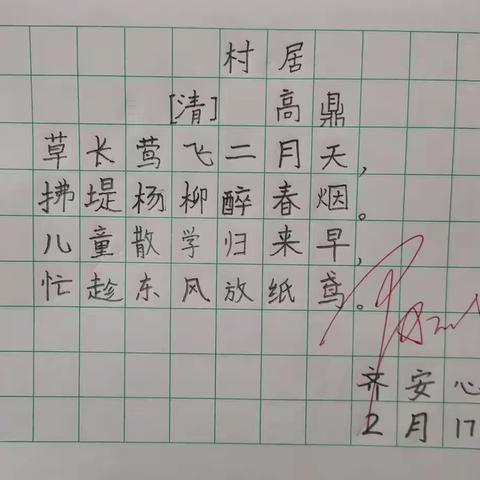 村居
[清] 高鼎
草长莺飞二月天,
拂堤杨柳醉春烟。
儿童散学归来早,
忙趁东风放纸鸢。
齐安心
2月17